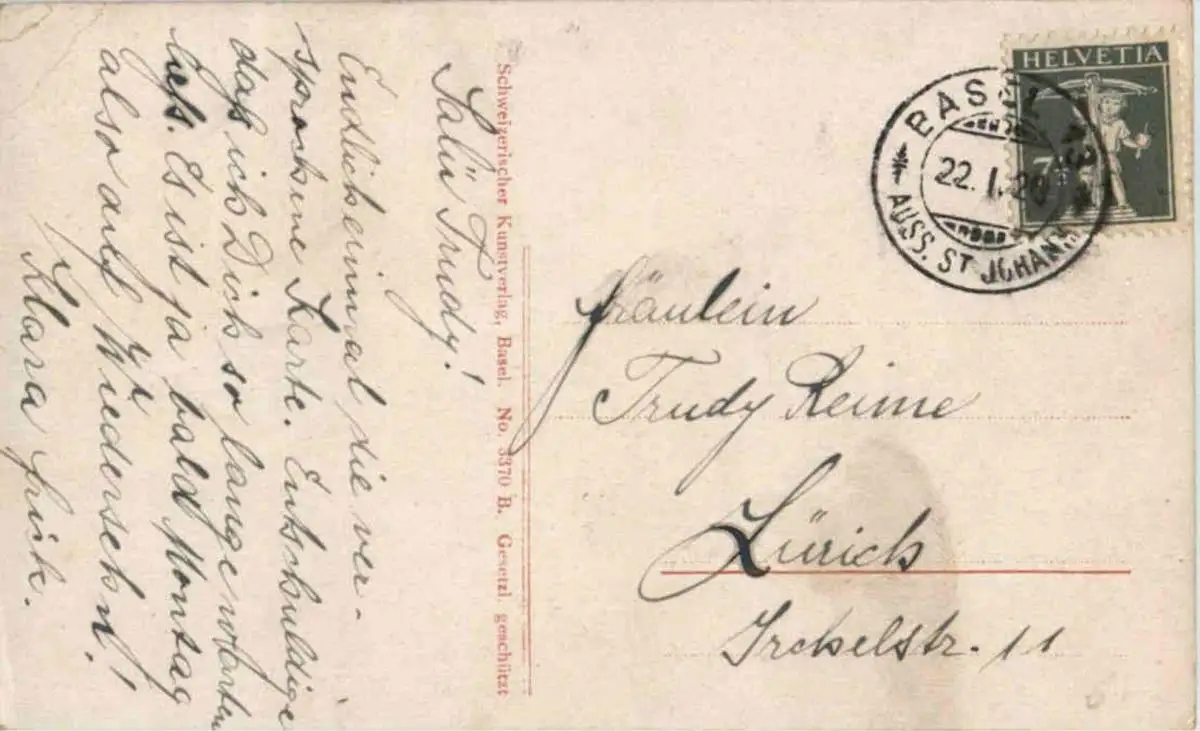 Salü Trudy!
Endlich einmal die ver-
sprochene Karte. Entschuldige
daß ich Dich so lange warten
ließ. Es ist ja bald Montag
also auf Wiedersehn!
Klara Frick.
Schweizerischer Kunstverlag, Basel. No. 3370 B. Gesetzl. geschützt
HELVETIA
7½
BASEL 13
22. I. 20
AUSS. ST JOHANN
Fräulein
Trudy Reime
Zürich
Irchelstr. 11